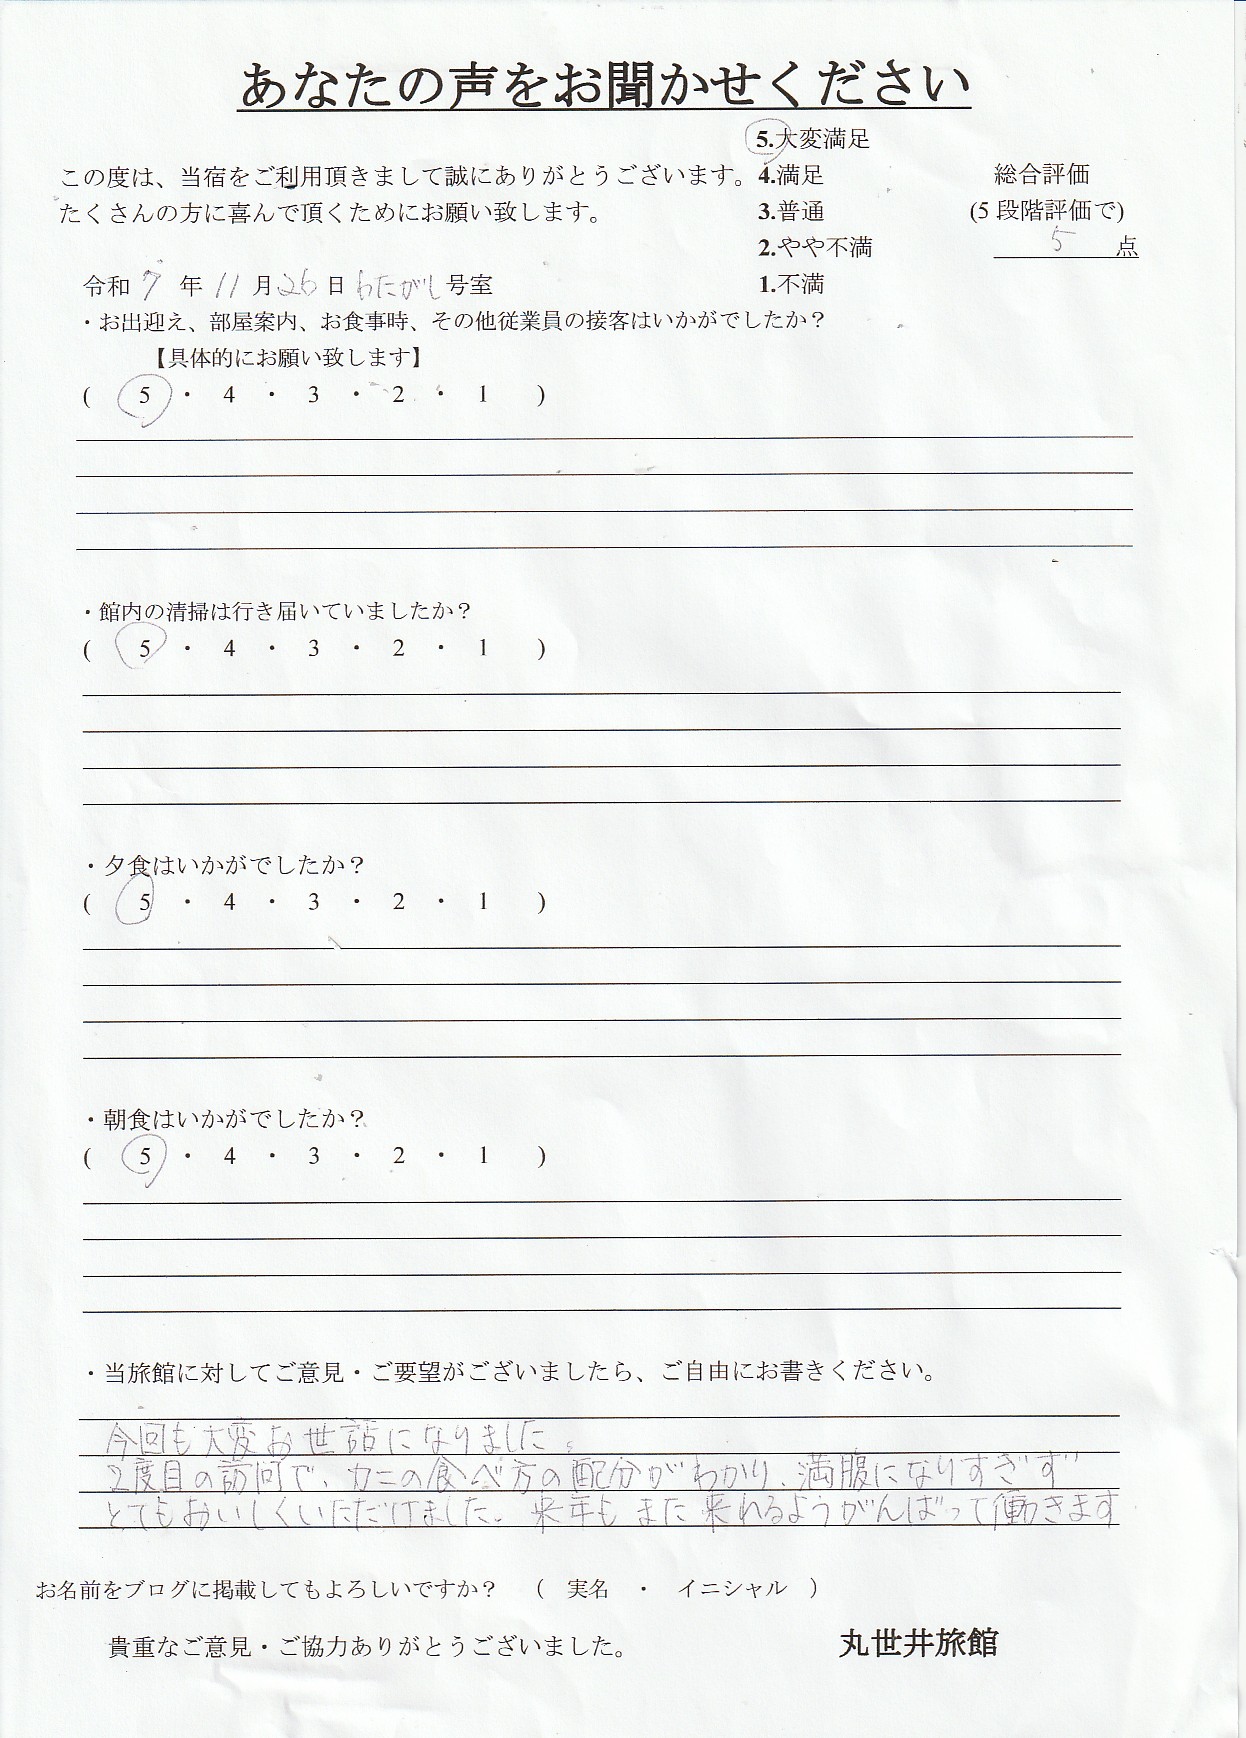 あなたの声をお聞かせください
この度は、当宿をご利用頂きまして誠にありがとうございます。
たくさんの方に喜んで頂くためにお願い致します。
5.大変満足
4.満足
3.普通
2.やや不満
1.不満
総合評価
(5 段階評価で)
5 点
令和 7 年 11 月 26 日 わたがし 号室
・お出迎え、部屋案内、お食事時、その他従業員の接客はいかがでしたか？
【具体的にお願い致します】
( 5 ・ 4 ・ 3 ・ 2 ・ 1 )
・館内の清掃は行き届いていましたか？
( 5 ・ 4 ・ 3 ・ 2 ・ 1 )
・夕食はいかがでしたか？
( 5 ・ 4 ・ 3 ・ 2 ・ 1 )
・朝食はいかがでしたか？
( 5 ・ 4 ・ 3 ・ 2 ・ 1 )
・当旅館に対してご意見・ご要望がございましたら、ご自由にお書きください。
今回も大変お世話になりました。
2度目の訪問で、カニの食べ方の配分がわかり、満腹になりすぎず
とてもおいしくいただけました。来年もまた来れるようがんばって働きます
お名前をブログに掲載してもよろしいですか？ （ 実名 ・ イニシャル ）
貴重なご意見・ご協力ありがとうございました。
丸世井旅館